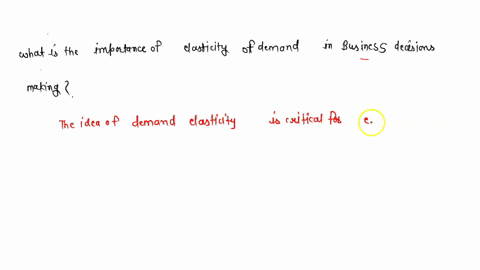 what is the importance of elasticity of demand in Business decisions
making?
The idea of demand elasticity is critical for e.